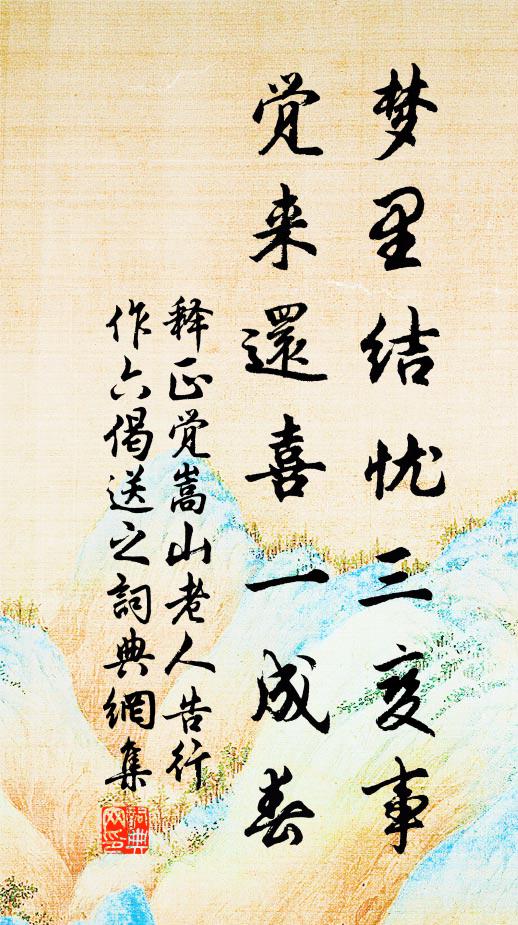 梦里结忧三变事
觉来還喜一成春
释正觉嵩山老人告行
作六偈送之詞典網集
詞典
网印